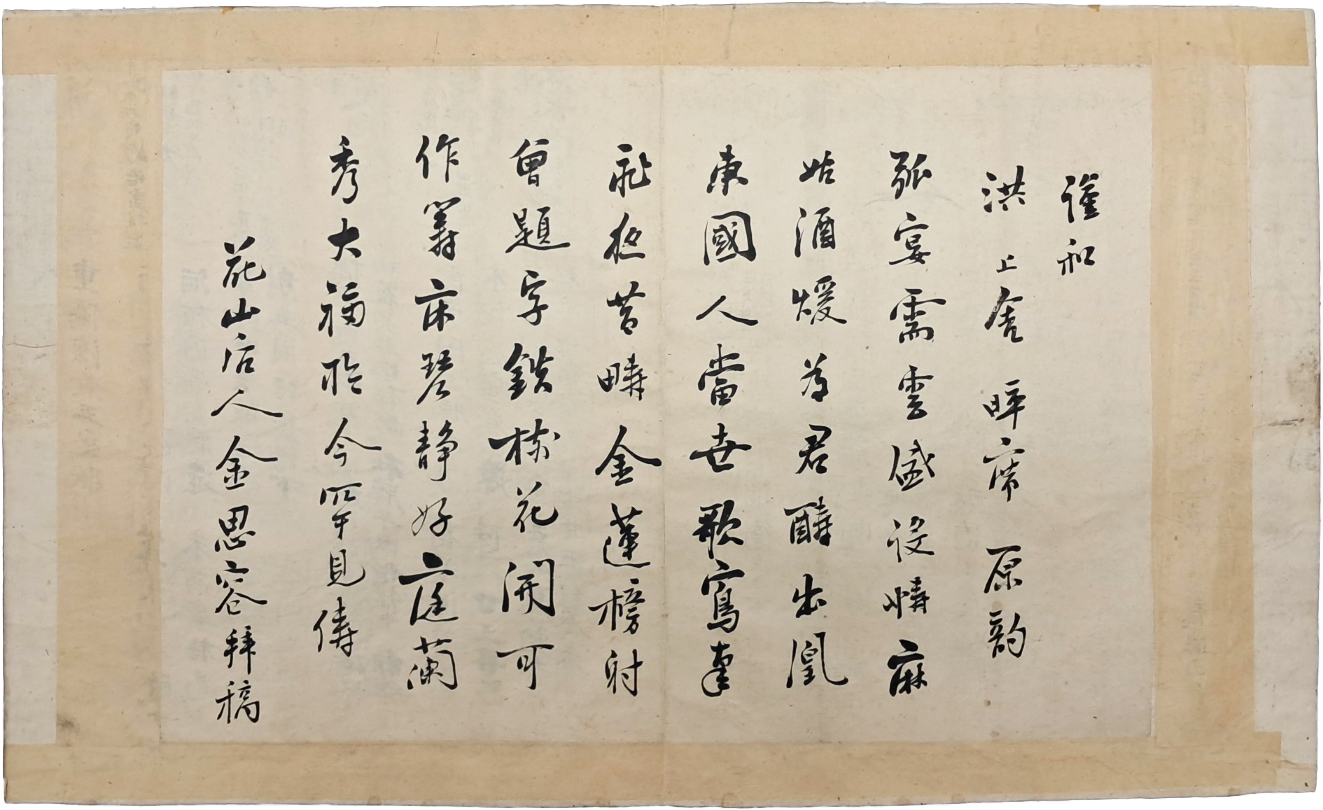 謹和
洪上舍 晬席 原韵
弧宴需雲盛設幬麻
姑酒煖為君醻出凰
東國人當世歌寫南
飛夜昔疇金蓮榜射
曾題字鉄樹花開可
作籌床琴静好庭蘭
秀大福於今罕見儔
花山后人金思容拜稿